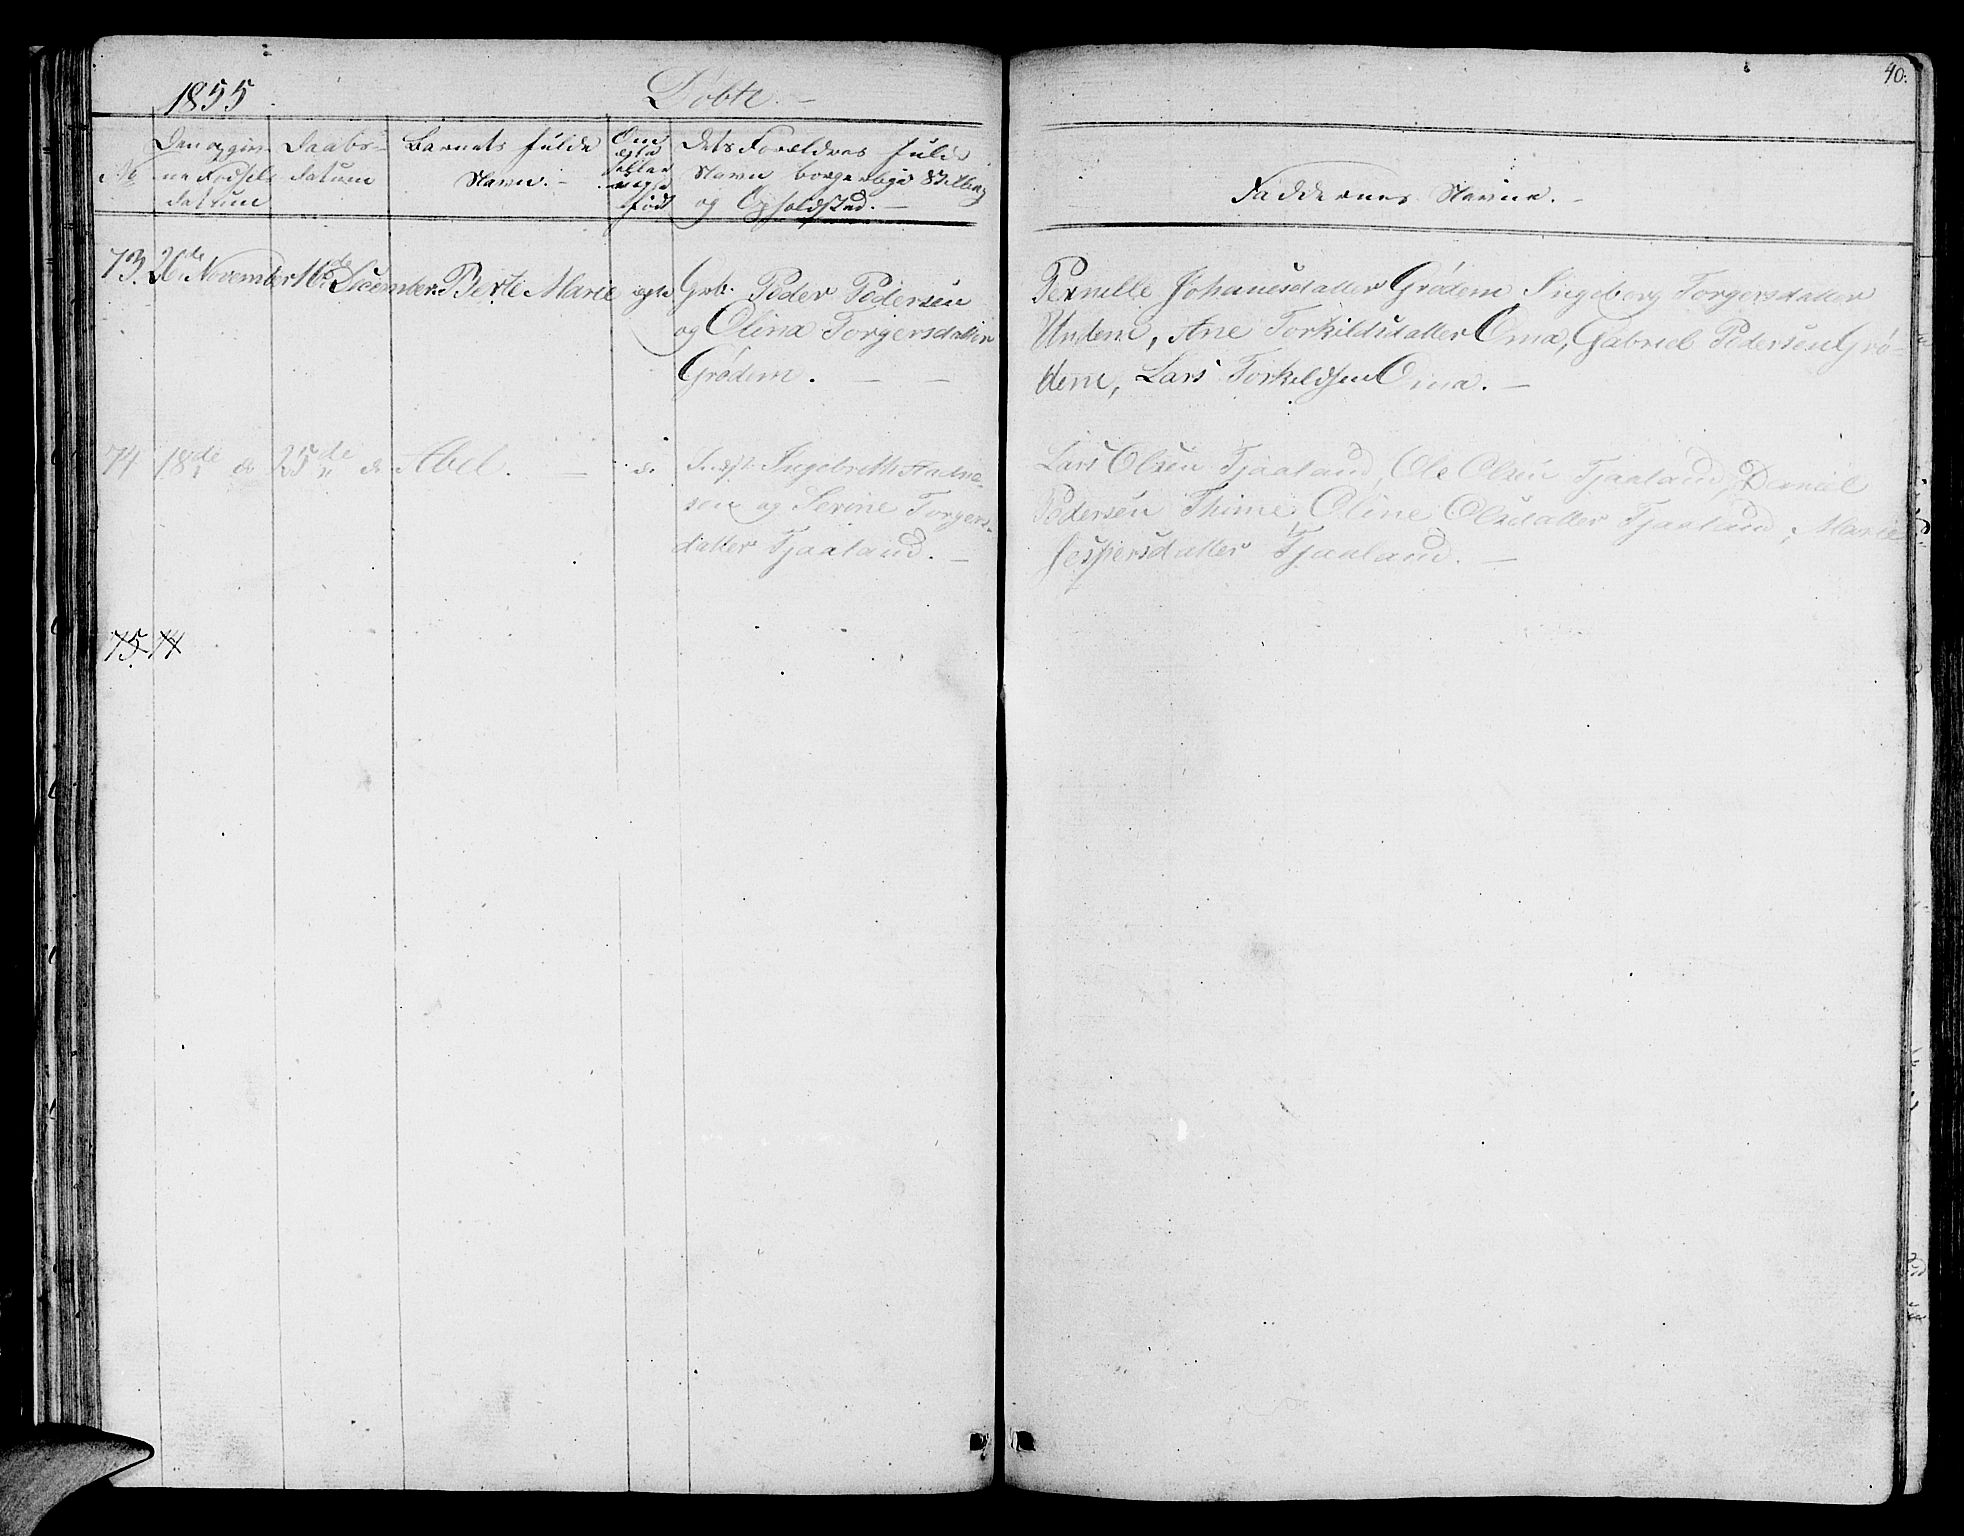 40.
1855
Døbte. –
No
Den opgivne Fødsels datum
Daabs-datum
Barnets fulde Navn. –
Om ægte eller uægte født
Dets Forældres fulde Navn borgerlige Stilling og Opholdsted. –
Faddernes Navne. –
73. 26de November 16de December. Berte Marie ægte Grb. Peder Pedersen
og Olina Torgersdatter
Grødem. – –
Pernille Johanesdatter Grødem Ingeborg Torgersdatter
Undem, Ane Torkildsdatter Oma, Gabriel Pedersen Grø-
dem, Lars Torkildsen Oma. –
74 18de do 25de do Abel. – do Ingebreth Aadne-
sen og Serine Torgers-
datter Tjaaland. –
Lars Olsen Tjaaland, Ole Olsen Tjaaland,
Pedersen Thime Oline Olsdatter Tjaaland, Marie
Jespersdatter Tjaaland. –
75 74